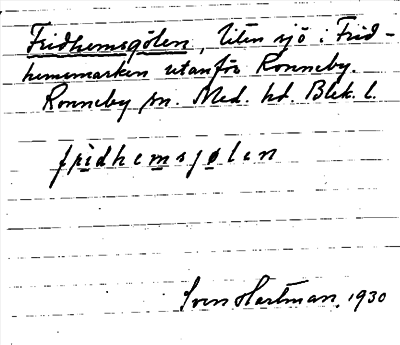 Fridhemsgölen, liten sjö i Frid-
hemsmarken utanför Ronneby.
Ronneby sn. Med. hd. Blek. l.
fridhemsjølen
Sven Hartman, 1930